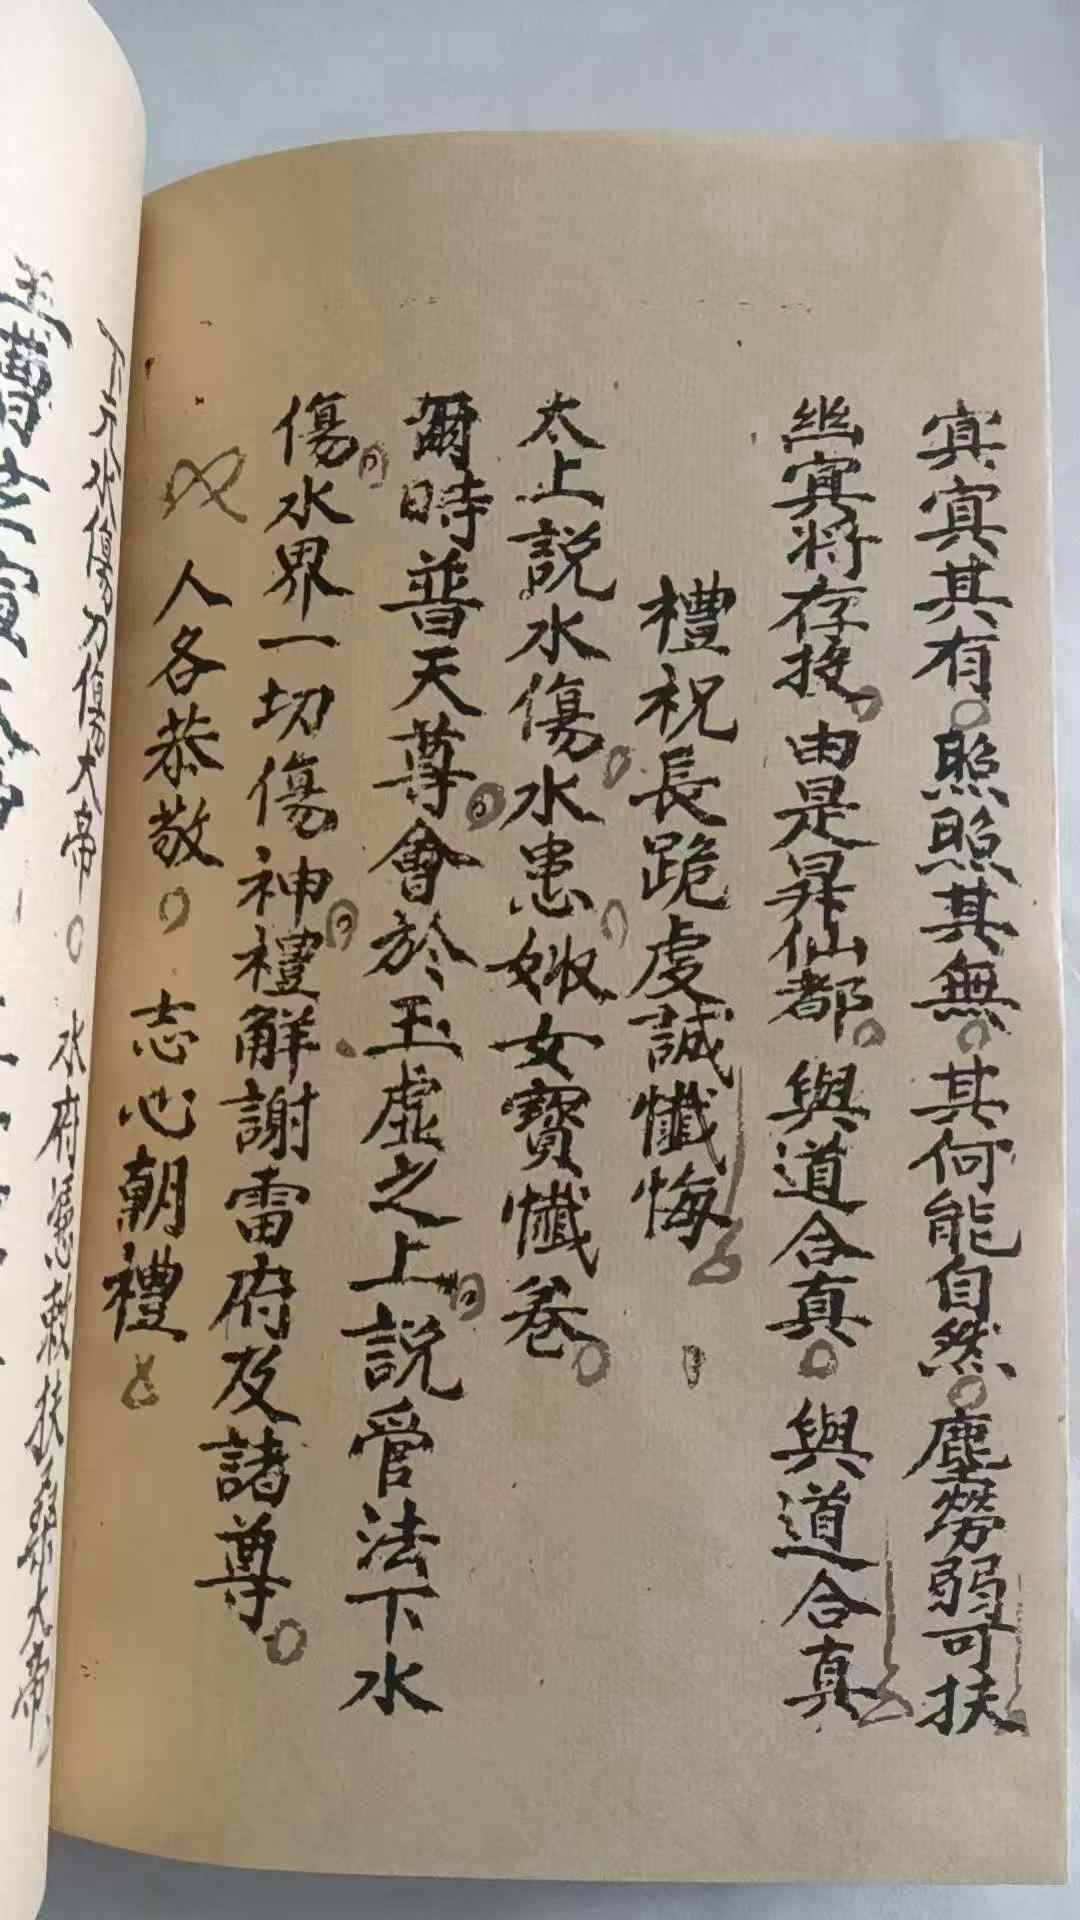 寘寘其有。照照其無。其何能自然。塵勞弱可扶
幽寘将存投。由是昇仙都。與道合真。與道合真
禮祝長跪虔誠懺悔
太上説水傷水患女寳懺卷。
爾時普天尊會於玉虛之上説管法下水
傷水界一切傷神禮解謝雷府及諸尊。
人各恭敬。志心朝禮
丁元水傷刀傷大帝。水府敕扶桑大帝